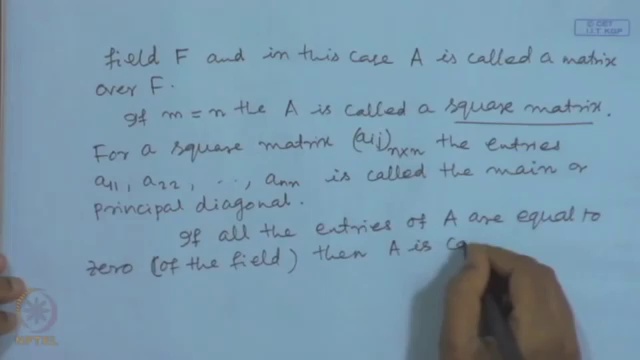 © CET
I.I.T. KGP
field F and in this case A is called a matrix
over F.
If m = n the A is called a square matrix.
For a square matrix (aij)n×n the entries
a11, a22, .., ann is called the main or
principal diagonal.
If all the entries of A are equal to
zero (of the field) then A is ca
NPTEL